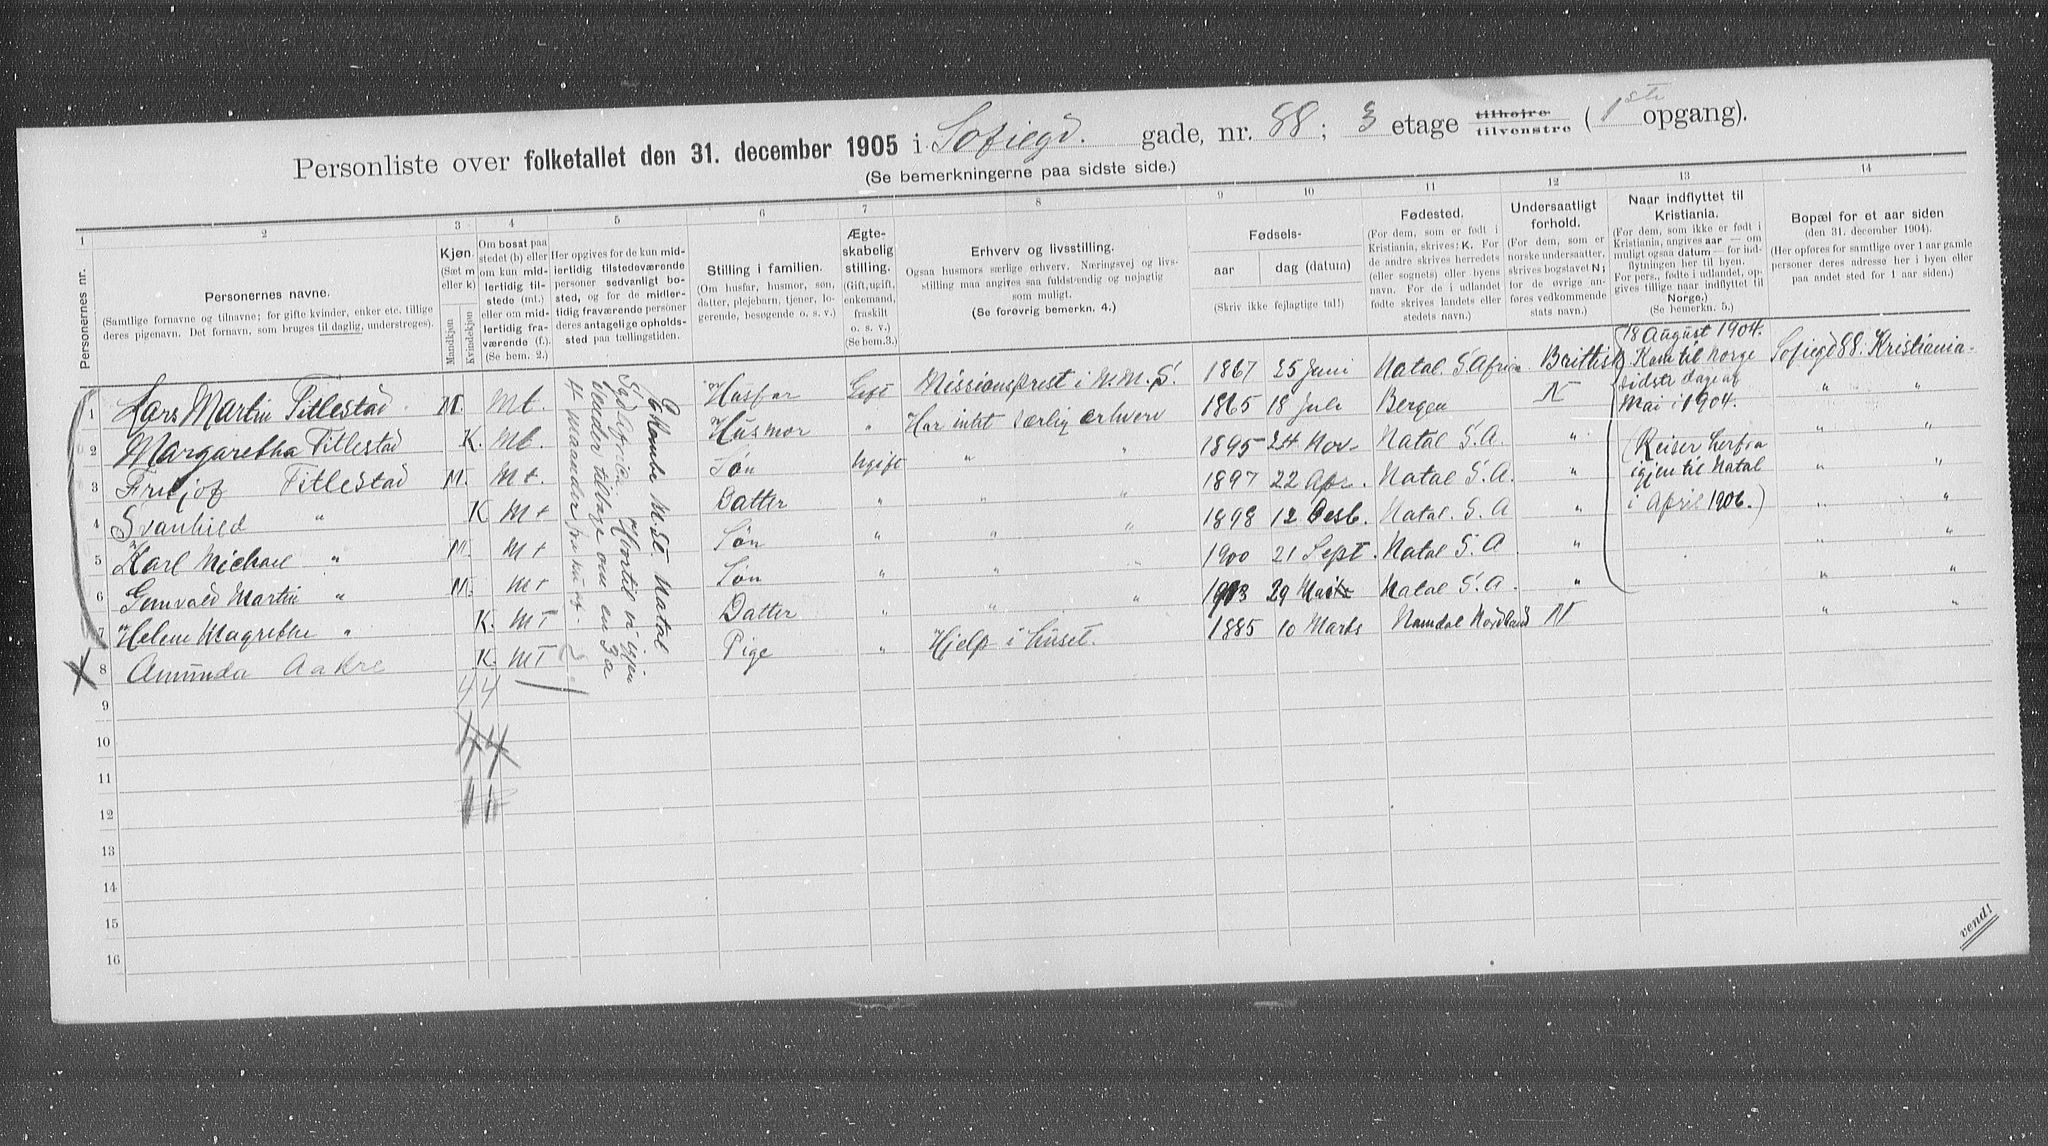 Personliste over folketallet den 31. december 1905 i Sofiegd. gade, nr. 88; 3 etage tilhøjre tilvenstre (1ste opgang).
(Se bemerkningerne paa sidste side.)
1 2 3 4 5 6 7 8 9 10 11 12 13 14
Personernes nr.
Personernes navne.
(Samtlige fornavne og tilnavne; for gifte kvinder, enker etc. tillige
deres pigenavn. Det fornavn, som bruges til daglig, understreges).
Kjøn.
(Sæt m
eller k)
Mandkjøn
Kvindekjøn
Om bosat paa
stedet (b) eller
om kun mid-
lertidig til-
stede (mt.)
eller om mid-
lertidig fra-
værende (f.).
(Se bem. 2.)
Her opgives for de kun mid-
lertidig tilstedeværende
personer sedvanligt bo-
sted, og for de midler-
tidig fraværende personer
deres antagelige opholds-
sted paa tællingstiden.
Stilling i familien.
(Om husfar, husmor, søn,
datter, plejebarn, tjener, lo-
gerende, besøgende o. s. v.)
Ægte-
skabelig
stilling.
(Gift, ugift,
enkemand,
fraskilt
o. s. v.)
(Se bem.3.)
Erhverv og livsstilling.
Ogsaa husmors særlige erhverv. Næringsvej og livs-
stilling maa angives saa fuldstændig og nøjagtig
som muligt.
(Se forøvrig bemerkn. 4.)
Fødsels-
aar
dag (datum)
(Skriv ikke fejlagtige tal!)
Fødested.
(For dem, som er født i
Kristiania, skrives: K. For
de andre skrives herredets
(eller sognets) eller byens
navn. For de i udlandet
fødte skrives landets eller
stedets navn.)
Undersaatligt
forhold.
(For dem, som er
norske undersaatter,
skrives bogstavet N;
for de øvrige an-
føres vedkommende
stats navn.)
Naar indflyttet til
Kristiania.
(For dem, som ikke er født i
Kristiania, angives aar — om
muligt ogsaa datum — for ind-
flytningen her til byen.
For pers., fødte i udlandet, op-
gives tillige naar indflyttet til
Norge.)
(Se bemerkn. 5.)
Bopæl for et aar siden
(den 31. december 1904).
(Her opføres for samtlige over 1 aar gamle
personer deres adresse her i byen eller
paa andet sted for 1 aar siden.)
1 Lars Martin Titlestad M. Mt. Husfar Gift Missionsprest i N.M.S. 1867 25 Juni Natal S. Africa Brittisk Sofiegd 88. Kristiania.
2 Margaretha Titlestad K. Mt. Husmor " Har intet særlig erhverv 1865 18 Juli Bergen N " "
3 Fritjof Titlestad M. Mt. Søn Ugift " " 1895 24 Nov. Natal S. A. " " "
4 Svanhild " K Mt Datter " " " 1897 22 Apr. Natal S. A. " " "
5 Karl Michael " M. Mt Søn " " " 1898 12 Desb. Natal. S. A " " "
6 Gunvald Martin " M. Mt Søn " " " 1900 21 Sept. Natal S. A " " "
7 Helene Magrethe " K. MT Datter " " " 1903 29 Natal S. A. " " "
8 Amunda Aakre K. MT Pige " Hjelp i huset. 1885 10 Marts Namdal Nordland N " "
Ekombe M. St. Natal
Sydafrica. Hvortil vi igjen
vender tilbage om en 3 a
4 maaneder
18 August 1904.
Kom til Norge
sidste dage af
Mai i 1904.
(Reiser herfra
igjen til Natal
i April 1906.)
4 4
9
10
11
12
13
14
15
16
vend!